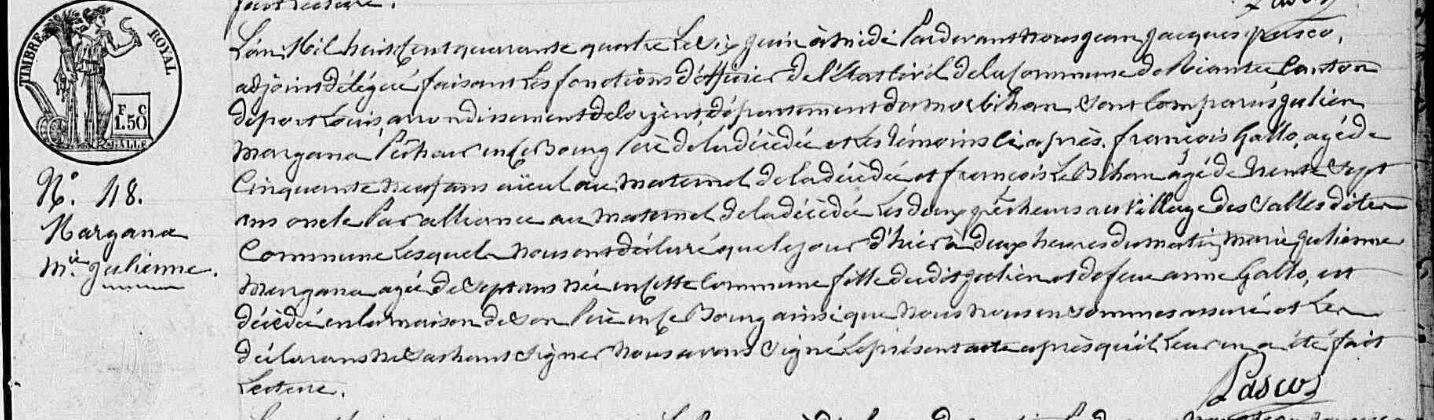 fait lecture.
TIMBRE ROYAL
F. C
1.50
N.° 48.
Margana
M.ie julienne.
L'an Mil huit Cent quarante quatre le six juin à midi Pardevant nous jean jacques pasco,
adjoint délégué faisant les fonctions d'officier de l'État Civil de la Commune de Riantec Canton
de port Louis, arrondissement de lorient, département du morbihan, sont Comparus julien
Margana Pêcheur en Ce Bourg Père de la décédée et les témoins Ci après. françois Gallo, agé de
Cinquante neuf ans aïeul au maternel de la décédée et françois Le Bihan agé de trente Sept
ans oncle Par alliance au maternel de la décédée les deux pêcheurs au Village des Salles dite
Commune lesquels nous ont déclaré que le jour d'hier à deux heures du matin marie julienne
Margana agée de Sept ans née en cette Commune fille du dit julien et de feue anne Gallo, est
décédée en la maison de son Père en Ce Bourg ainsi que nous nous en sommes assuré et les
déclarans ne Sachant signer nous avons Signé le présent acte après qu'il leur en a été fait
Lecture.
Pasco